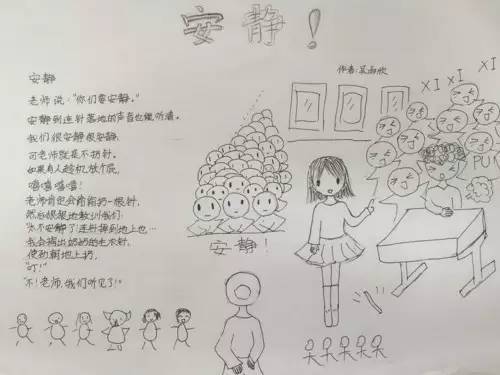 安静！
作者：吴雨欣
安静
老师说："你们要安静。"
安静到连针落地的声音也能听清。
我们很安静很安静，
可老师就是不扔针。
如果有人趁机放个屁，
嘻嘻嘻嘻！
老师肯定会偷偷扔一根针，
然后狠狠地教训我们：
"太不安静了！连针掉到地上也…
我会掏出奶奶的毛衣针，
使劲朝地上扔，
"叮！"
"不！老师，我们听见了！"
安静！
XI
XI
XI
PU